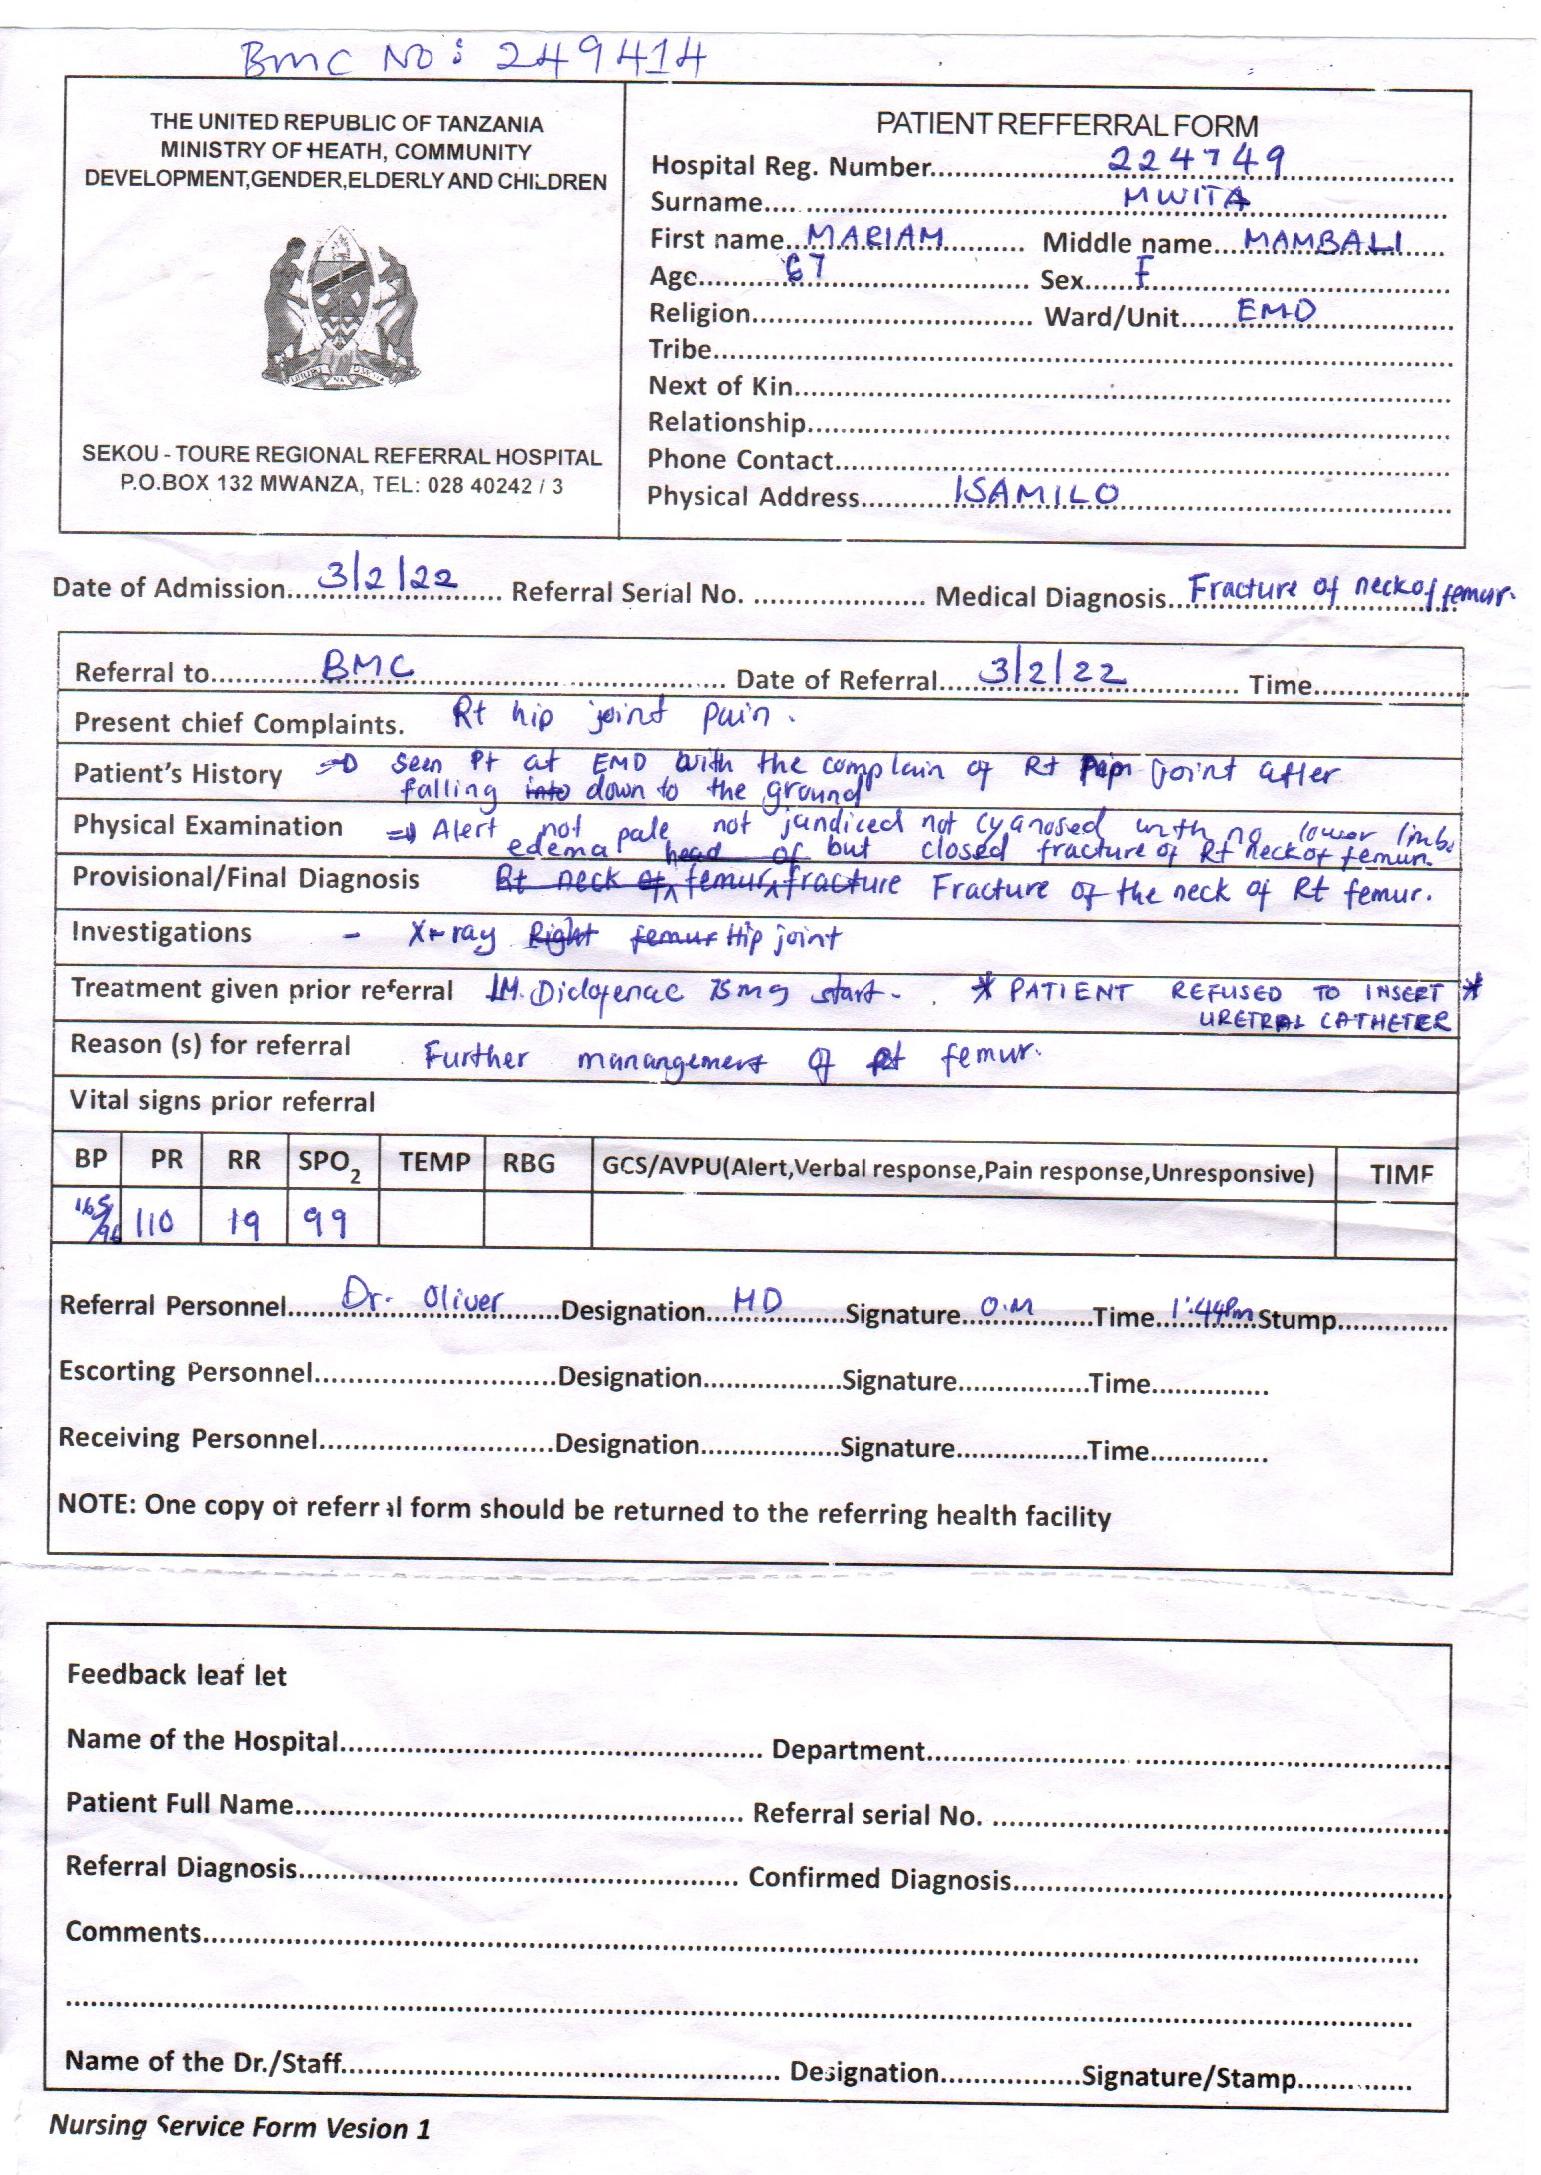 BMC NO: 249414
THE UNITED REPUBLIC OF TANZANIA
MINISTRY OF HEATH, COMMUNITY
DEVELOPMENT,GENDER,ELDERLY AND CHILDREN
SEKOU - TOURE REGIONAL REFERRAL HOSPITAL
P.O.BOX 132 MWANZA, TEL: 028 40242 / 3
PATIENT REFFERRAL FORM
Hospital Reg. Number 224749
Surname MWITA
First name MARIAM Middle name MAMBALI
Age 67 Sex F
Religion Ward/Unit EMD
Tribe
Next of Kin
Relationship
Phone Contact
Physical Address ISAMILO
Date of Admission 3/2/22 Referral Serial No. Medical Diagnosis Fracture of neck of femur.
Referral to BMC Date of Referral 3/2/22 Time
Present chief Complaints. Rt hip joint pain.
Patient's History seen Pt at EMD with the complain of Rt joint after
falling into down to the ground
Physical Examination => Alert not pale not jandiced not cyanosed with no lower limbs
edema head of but closed fracture of Rt neck of femur.
Provisional/Final Diagnosis Rt neck of femur fracture Fracture of the neck of Rt femur.
Investigations - X-ray Right femur Hip joint
Treatment given prior referral IM. Diclofenac 75mg start. * PATIENT REFUSED TO INSERT *
URETRAL CATHETER
Reason (s) for referral Further manangement of Rt femur.
Vital signs prior referral
BP PR RR SPO2 TEMP RBG GCS/AVPU(Alert,Verbal response,Pain response,Unresponsive) TIME
165/96 110 19 99
Referral Personnel Dr. Oliver Designation MD Signature O.M Time 1:44pm Stump
Escorting Personnel Designation Signature Time
Receiving Personnel Designation Signature Time
NOTE: One copy of referral form should be returned to the referring health facility
Feedback leaf let
Name of the Hospital Department
Patient Full Name Referral serial No.
Referral Diagnosis Confirmed Diagnosis
Comments
Name of the Dr./Staff Designation Signature/Stamp
Nursing Service Form Vesion 1